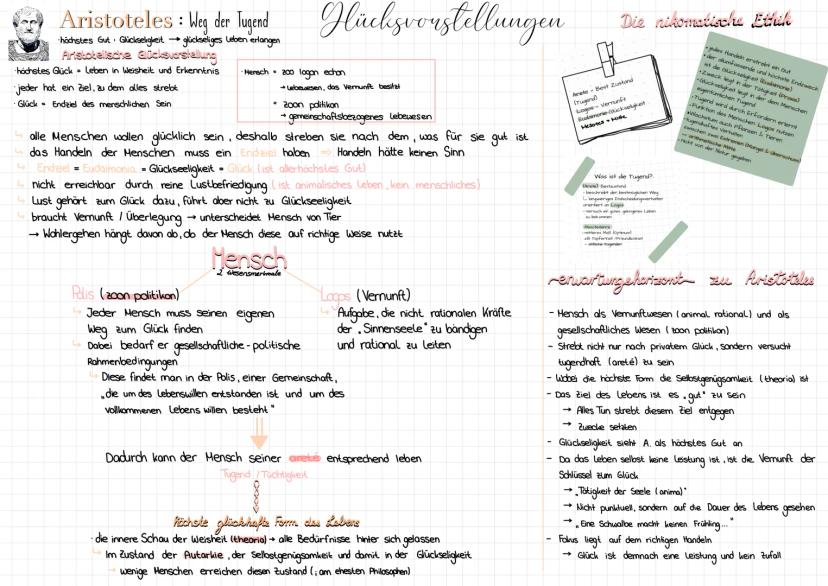 Glücksvorstellungen
Aristoteles : Weg der Tugend
·höchstes Gut : Glückseligkeit → glückseliges Leben erlangen
Aristotelische Glücksvorstellung
·höchstes Glück = Leben in Weisheit und Erkenntnis
·jeder hat ein Ziel, zu dem alles strebt
·Glück = Endziel des menschlichen Sein
·Mensch = zoo logon echon
→ Lebewesen, das Vernunft besitzt
= zoon politikon
→ gemeinschaftsbezogenes Lebewesen
alle Menschen wollen glücklich sein, deshalb streben sie nach dem, was für sie gut ist
das Handeln der Menschen muss ein Endziel haben => Handeln hätte keinen Sinn
Endziel = Eudaimonia = Glückseeligkeit = Glück (ist allerhöchstes Gut)
nicht erreichbar durch reine Lustbefriedigung (ist animalisches Leben, kein menschliches)
Lust gehört zum Glück dazu, führt aber nicht zu Glückseeligkeit
braucht Vernunft / Überlegung → unterscheidet Mensch von Tier
→ Wohlergehen hängt davon ab, ob der Mensch diese auf richtige Weise nutzt
Mensch
2 Wesensmerkmale
Polis (zoon politikon)
Jeder Mensch muss seinen eigenen
Weg zum Glück finden
Dabei bedarf er gesellschaftliche-politische
Rahmenbedingungen
Diese findet man in der Polis, einer Gemeinschaft,
„die um des Lebenswillen entstanden ist und um des
vollkommenen Lebens willen besteht"
Logos (Vernunft)
Aufgabe, die nicht rationalen Kräfte
der „Sinnenseele" zu bändigen
und rational zu leiten
Dadurch kann der Mensch seiner areté entsprechend leben
Tugend / Tüchtigkeit
Höchste glückhafte Form des Lebens
·die innere Schau der Weisheit (theoria) → alle Bedürfnisse hinter sich gelassen
Im Zustand der Autarkie, der Selbstgenügsamkeit und damit in der Glückseligkeit
→ wenige Menschen erreichen diesen Zustand (; am ehesten Philosophen)
Die nikomatische Ethik
Arete = Best Zustand
(Tugend)
Logos = Vernunft
Eudaimonie = Glückseligkeit
jedes Handeln erstrebt ein Gut
der allumfassende und höchste Endzweck
ist die Glückseligkeit (Eudaimonie)
Zweck liegt in der Tätigkeit (Praxis)
Glückseligkeit liegt in der dem Menschen
eigentümlichen Tugend
Tugend wird durch Erfordern erlernt
Funktion des Menschen: Logos nutzen
Wachstum auch Pflanzen & Tieren
Nicht von der Natur gegeben
Was ist die Tugend?
(Arete) Bestzustand
- beschreibt der bestmöglichen Weg
orientiert an Logos
zu bekommen
- mittleres Maß (Optimum)
erwartungshorizont zu Aristoteles
- Mensch als Vernunftwesen (animal rational) und als
gesellschaftliches Wesen (zoon politikon)
- Strebt nicht nur nach privatem Glück, sondern versucht
tugendhaft (areté) zu sein
- Wobei die höchste Form die Selbstgenügsamkeit (theoria) ist
- Das Ziel des Lebens ist es „gut" zu sein
→ Alles Tun strebt diesem Ziel entgegen
→ Zwecke setzten
- Glückseligkeit sieht A. als höchstes Gut an
- Da das Leben selbst keine Leistung ist, ist die Vernunft der
Schlüssel zum Glück
→ „Tätigkeit der Seele (anima)"
→ Nicht punktuell, sondern auf die Dauer des Lebens gesehen
→ „Eine Schwalbe macht keinen Frühling..."
- Fokus liegt auf dem richtigen Handeln
→ Glück ist demnach eine Leistung und kein Zufall